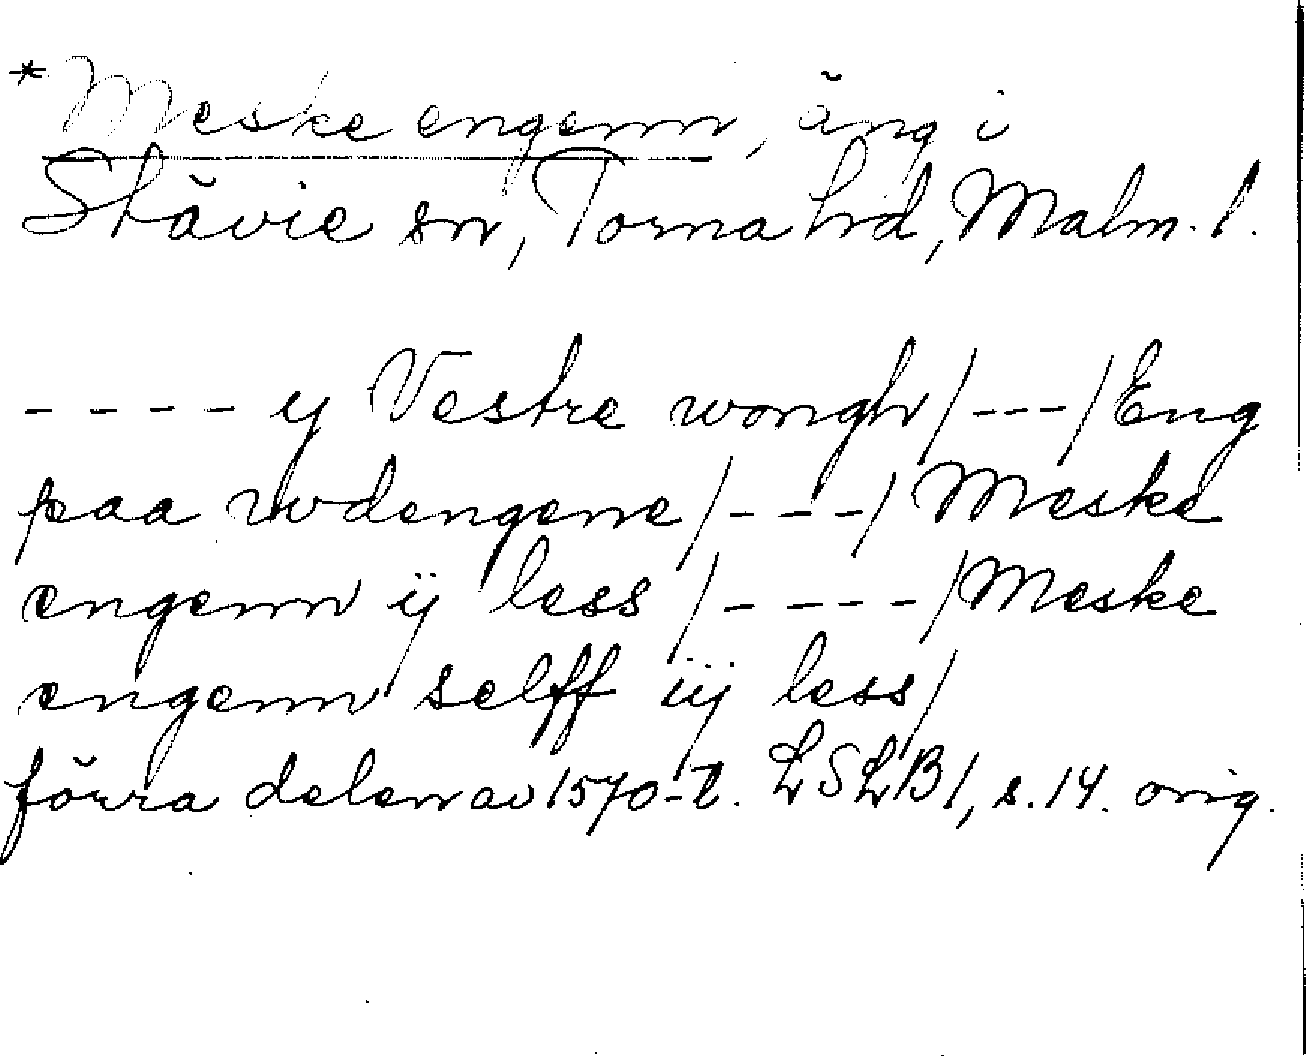 *Meske engenn, äng i
Stävie sn, Torna hd, Malm. l.
- - - - y Vestre wongh/---/Eng
paa wdengene/- - -/ Meske
engenn ij less /- - - -/Meske
engenn selff iij less/
förra delen av 1570-t. LSLB1, s. 14. orig.